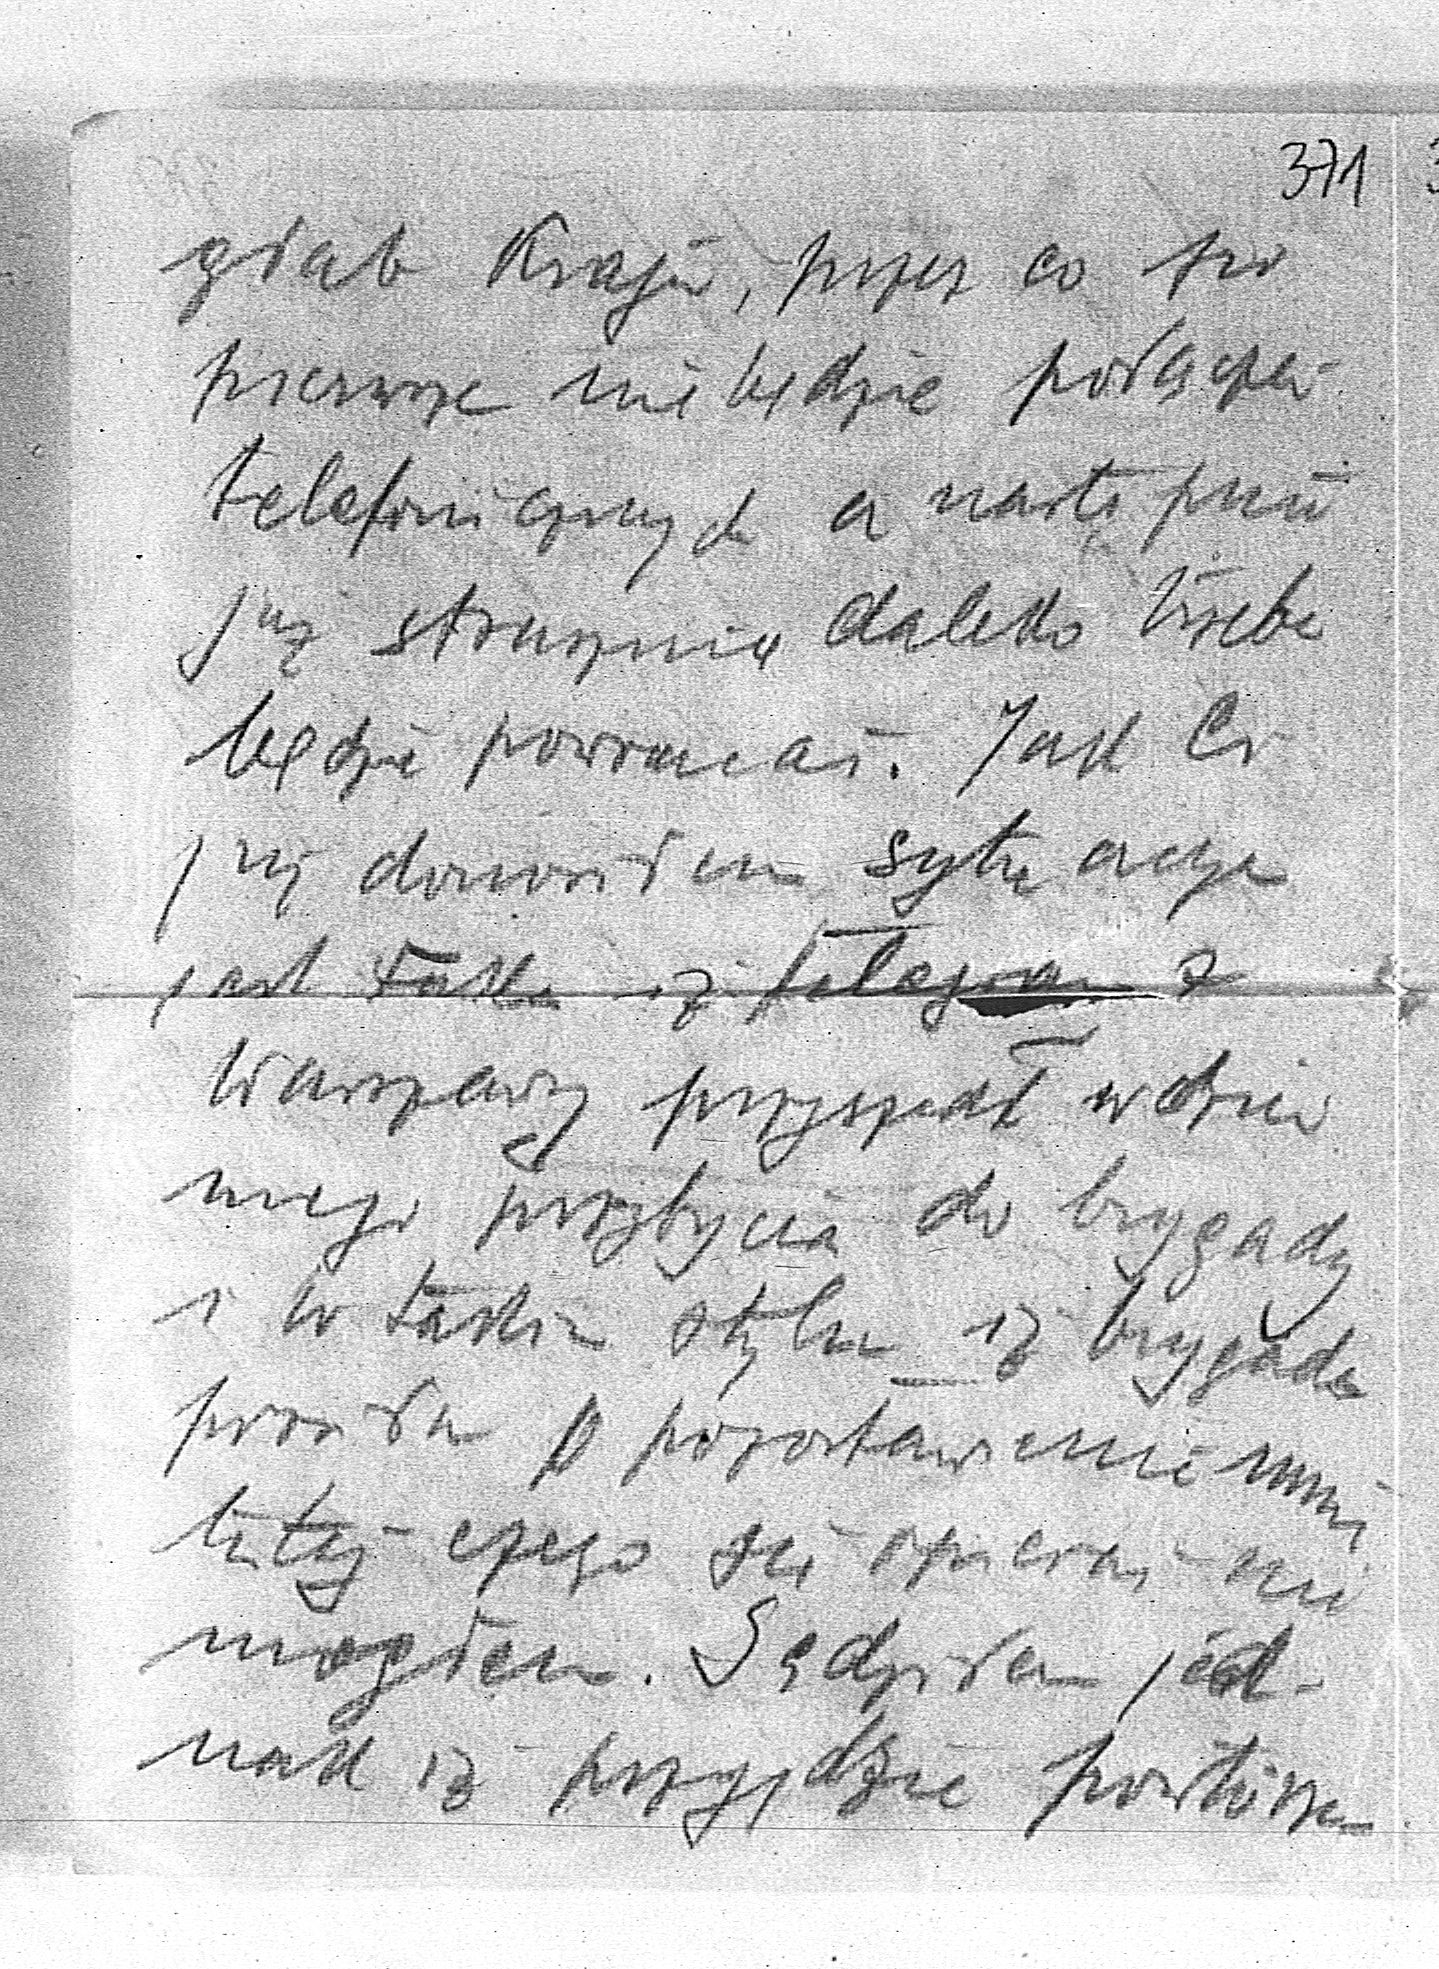 371
głąb Kraju, przez co po
pierwsze nie będzie połączeń
telefonicznych a następnie
już strasznie daleko trzeba
będzie powracać. Jak Ci
już donosiłem sytuacja
jest taka iż telegram z
Warszawy przyszedł w dniu
mego przybycia do brygady
i w takim stylu iż brygada
prosiła o pozostawienie mnie
tutaj czego się opierać nie
mogłem. Sądziłem jed-
nak iż przyjdzie powtórzen